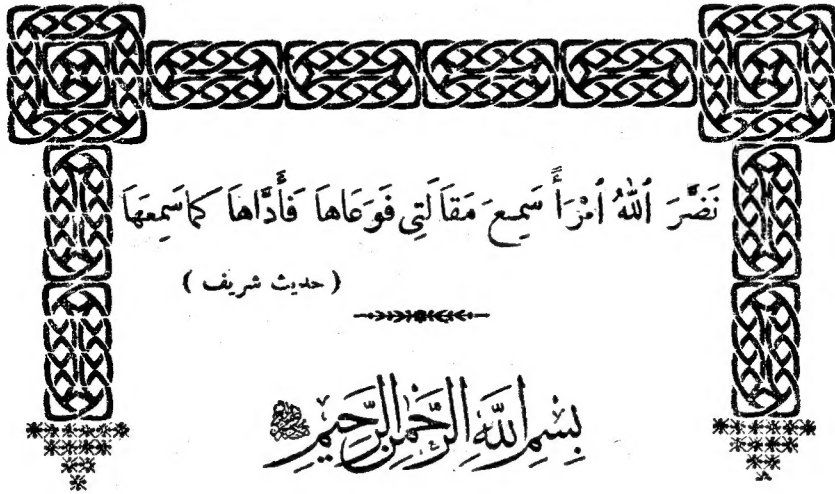 نَضَّرَ ٱللّٰهُ ٱمْرَأً سَمِعَ مَقَالَتِي فَوَعَاهَا فَأَدَّاهَا كَمَا سَمِعَهَا
( حديث شريف )
بِسْمِ اللَّهِ الرَّحْمٰنِ الرَّحِيمِ